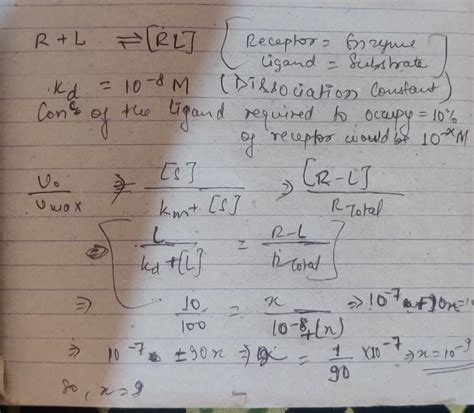 R + L ⇌ [RL] [Receptor = Enzyme
Ligand = Substrate]
kd = 10⁻⁸ M (Dissociation Constant)
Conc of the ligand required to occupy = 10%
of receptor would be 10⁻ˣ M
v₀/vmax ⇒ [S]/(km + [S]) ⇒ [R-L]/RTotal
⇒ [L/(kd + [L]) = R-L/RTotal]
⇒ 10/100 = x/(10⁻⁸ + (x)) ⇒ 10⁻⁷ + 10x = 10
⇒ 10⁻⁷ = 90x ⇒ x = 1/90 × 10⁻⁷ ⇒ x = 10⁻⁹
so, x = 9